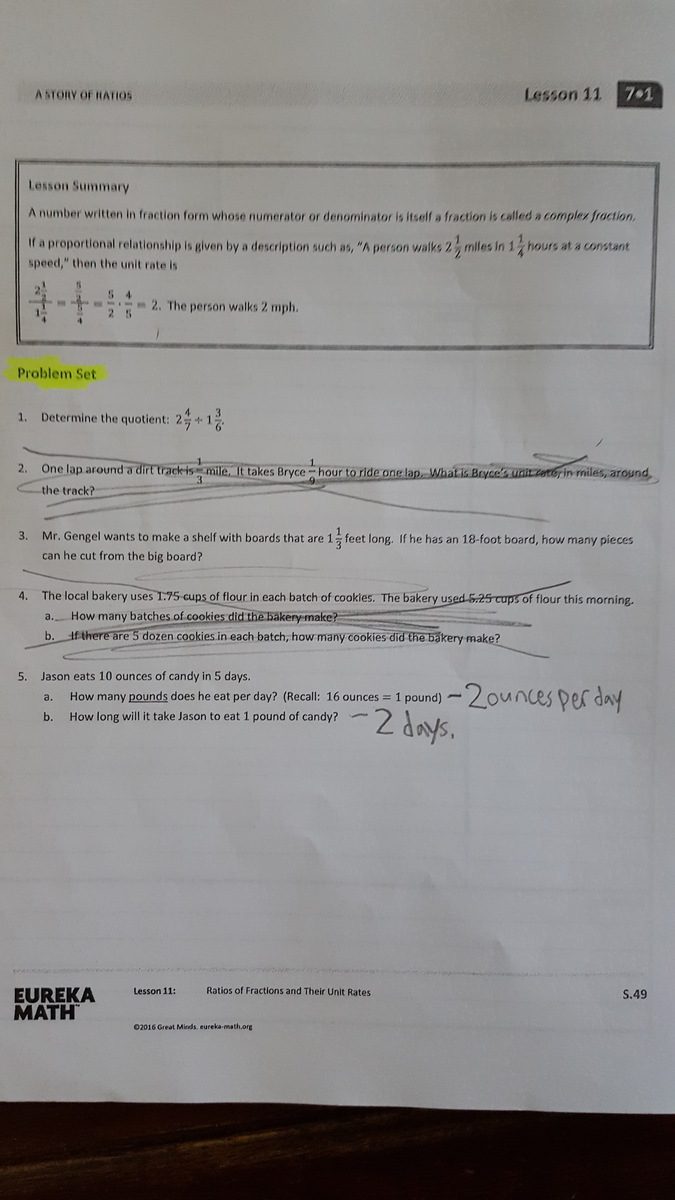 A STORY OF RATIOS
Lesson 11 7•1
Lesson Summary
A number written in fraction form whose numerator or denominator is itself a fraction is called a complex fraction.
If a proportional relationship is given by a description such as, "A person walks 2 1/2 miles in 1 1/4 hours at a constant
speed," then the unit rate is
(2 1/2)/(1 1/4) = (5/2)/(5/4) = 5/2 · 4/5 = 2. The person walks 2 mph.
Problem Set
1. Determine the quotient: 2 4/7 ÷ 1 3/6.
2. One lap around a dirt track is 1/3 mile. It takes Bryce 1/9 hour to ride one lap. What is Bryce's unit rate, in miles, around
the track?
3. Mr. Gengel wants to make a shelf with boards that are 1 1/3 feet long. If he has an 18-foot board, how many pieces
can he cut from the big board?
4. The local bakery uses 1.75 cups of flour in each batch of cookies. The bakery used 5.25 cups of flour this morning.
a. How many batches of cookies did the bakery make?
b. If there are 5 dozen cookies in each batch, how many cookies did the bakery make?
5. Jason eats 10 ounces of candy in 5 days.
a. How many pounds does he eat per day? (Recall: 16 ounces = 1 pound) – 2 ounces per day
b. How long will it take Jason to eat 1 pound of candy? – 2 days.
EUREKA
MATH™
Lesson 11: Ratios of Fractions and Their Unit Rates
S.49
©2016 Great Minds. eureka-math.org